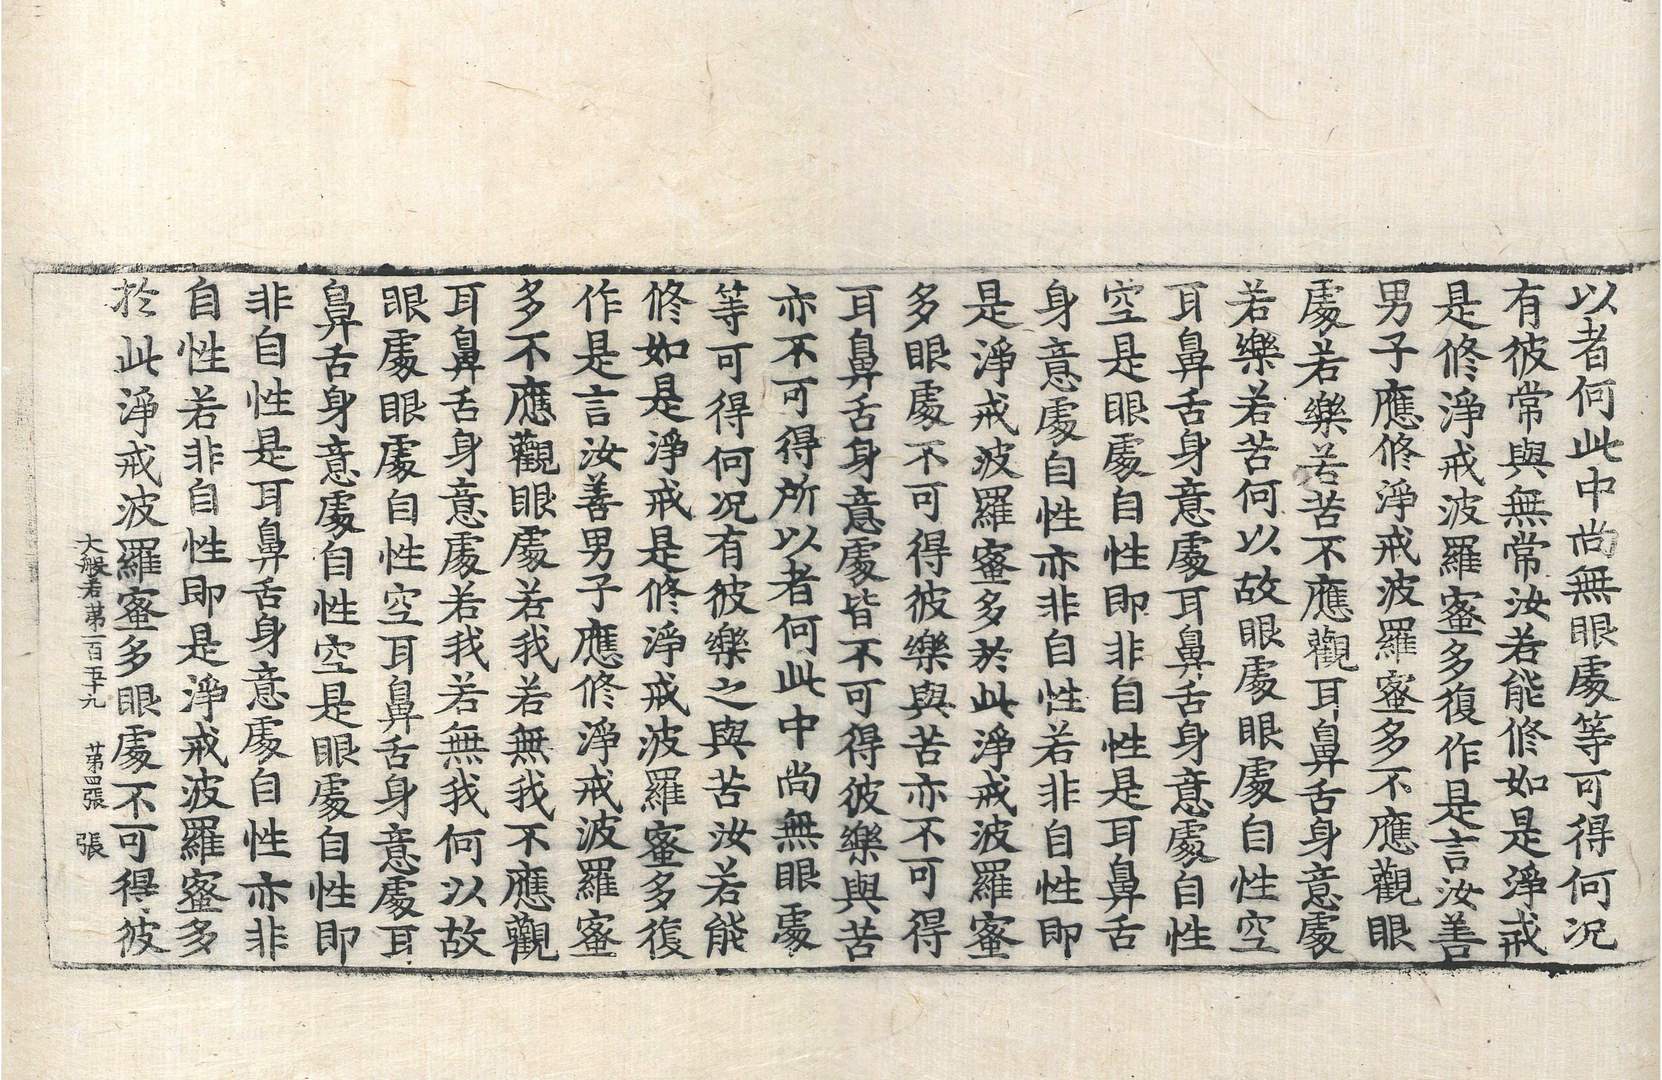 以者何此中尚無眼處等可得何況
有彼常與無常汝若能修如是淨戒
是修淨戒波羅蜜多復作是言汝善
男子應修淨戒波羅蜜多不應觀眼
處若樂若苦不應觀耳鼻舌身意處
若樂若苦何以故眼處眼處自性空
耳鼻舌身意處耳鼻舌身意處自性
空是眼處自性即非自性是耳鼻舌
身意處自性亦非自性若非自性即
是淨戒波羅蜜多於此淨戒波羅蜜
多眼處不可得彼樂與苦亦不可得
耳鼻舌身意處皆不可得彼樂與苦
亦不可得所以者何此中尚無眼處
等可得何況有彼樂之與苦汝若能
修如是淨戒是修淨戒波羅蜜多復
作是言汝善男子應修淨戒波羅蜜
多不應觀眼處若我若無我不應觀
耳鼻舌身意處若我若無我何以故
眼處眼處自性空耳鼻舌身意處耳
鼻舌身意處自性空是眼處自性即
非自性是耳鼻舌身意處自性亦非
自性若非自性即是淨戒波羅蜜多
於此淨戒波羅蜜多眼處不可得彼
大般若第一百五十九 第四張 張